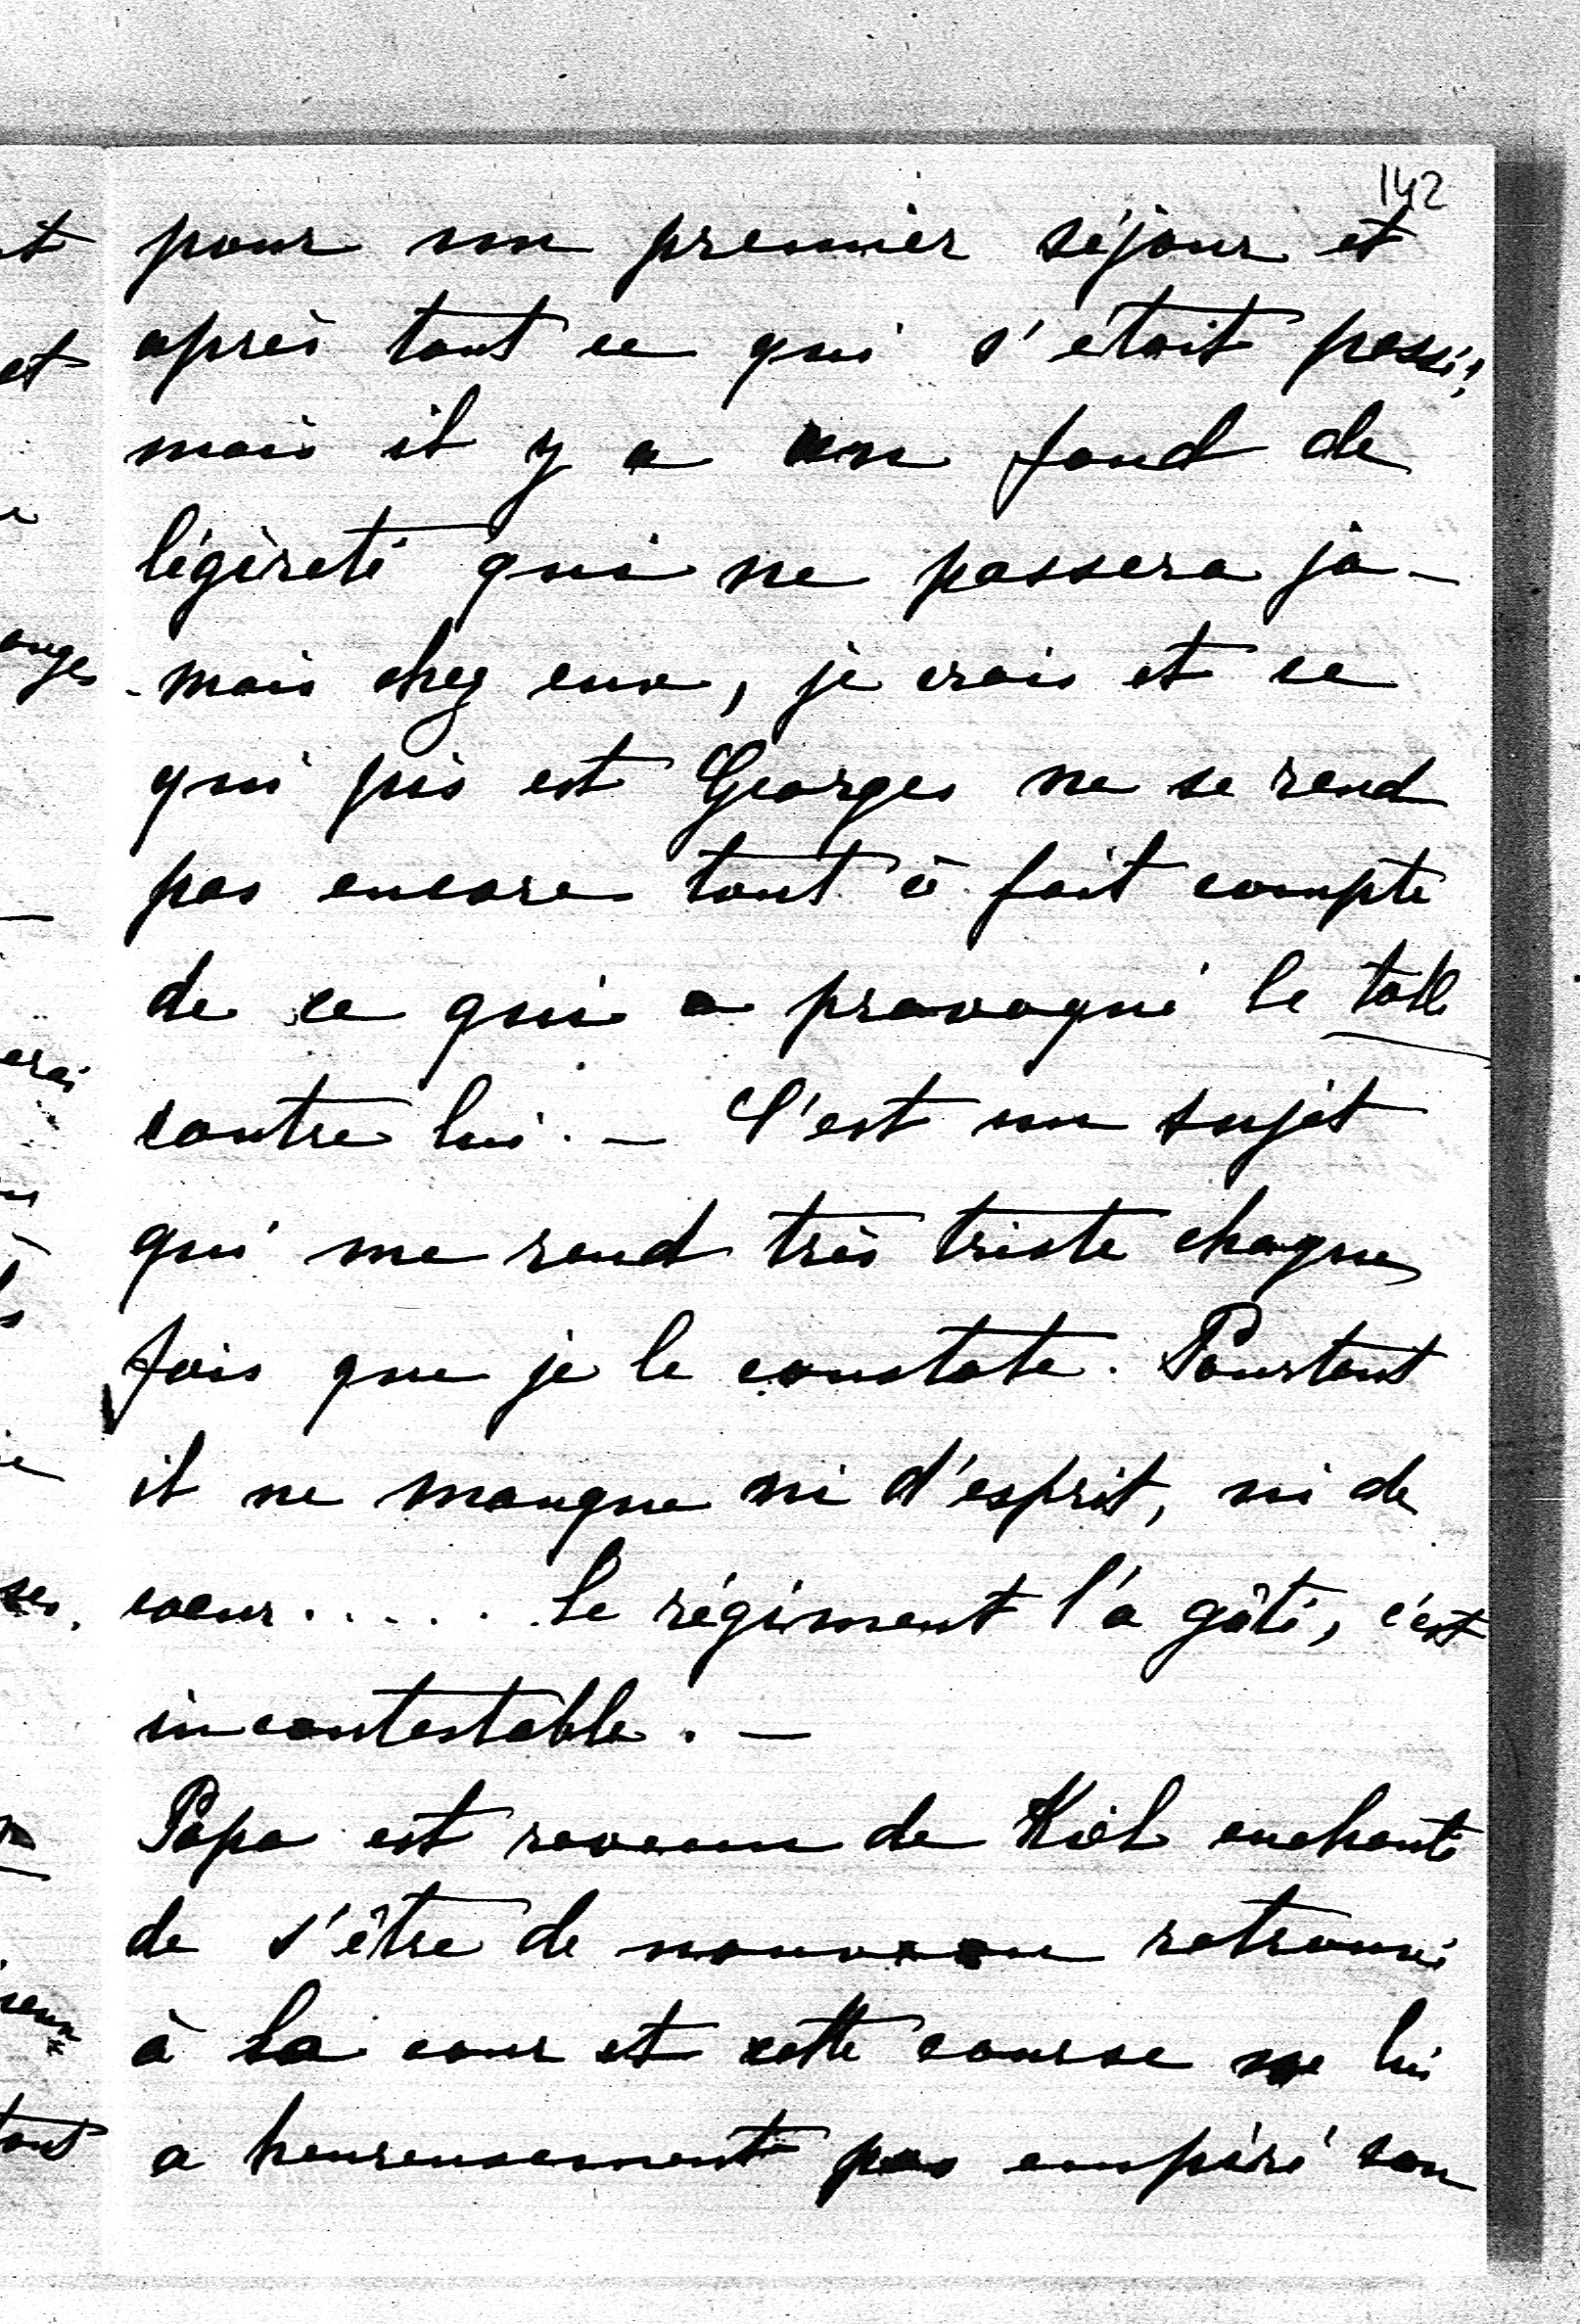 142
pour un premier séjour et
après tout ce qui s'était passé;
mais il y a un fond de
légèreté qui ne passera ja-
-mais chez eux, je crois et ce
qui pis est Georges ne se rend
pas encore tout à fait compte
de ce qui a provoqué le tolle
contre lui. — C'est un sujet
qui me rend très triste chaque
fois que je le constate. Pourtant
il ne manque ni d'esprit, ni de
coeur..... Le régiment l'a gâté, c'est
incontestable. —
Papa est revenu de Kiel enchanté
de s'être de nouveau retrouvé
à la cour et cette course ne lui
a heureusement pas empiré son